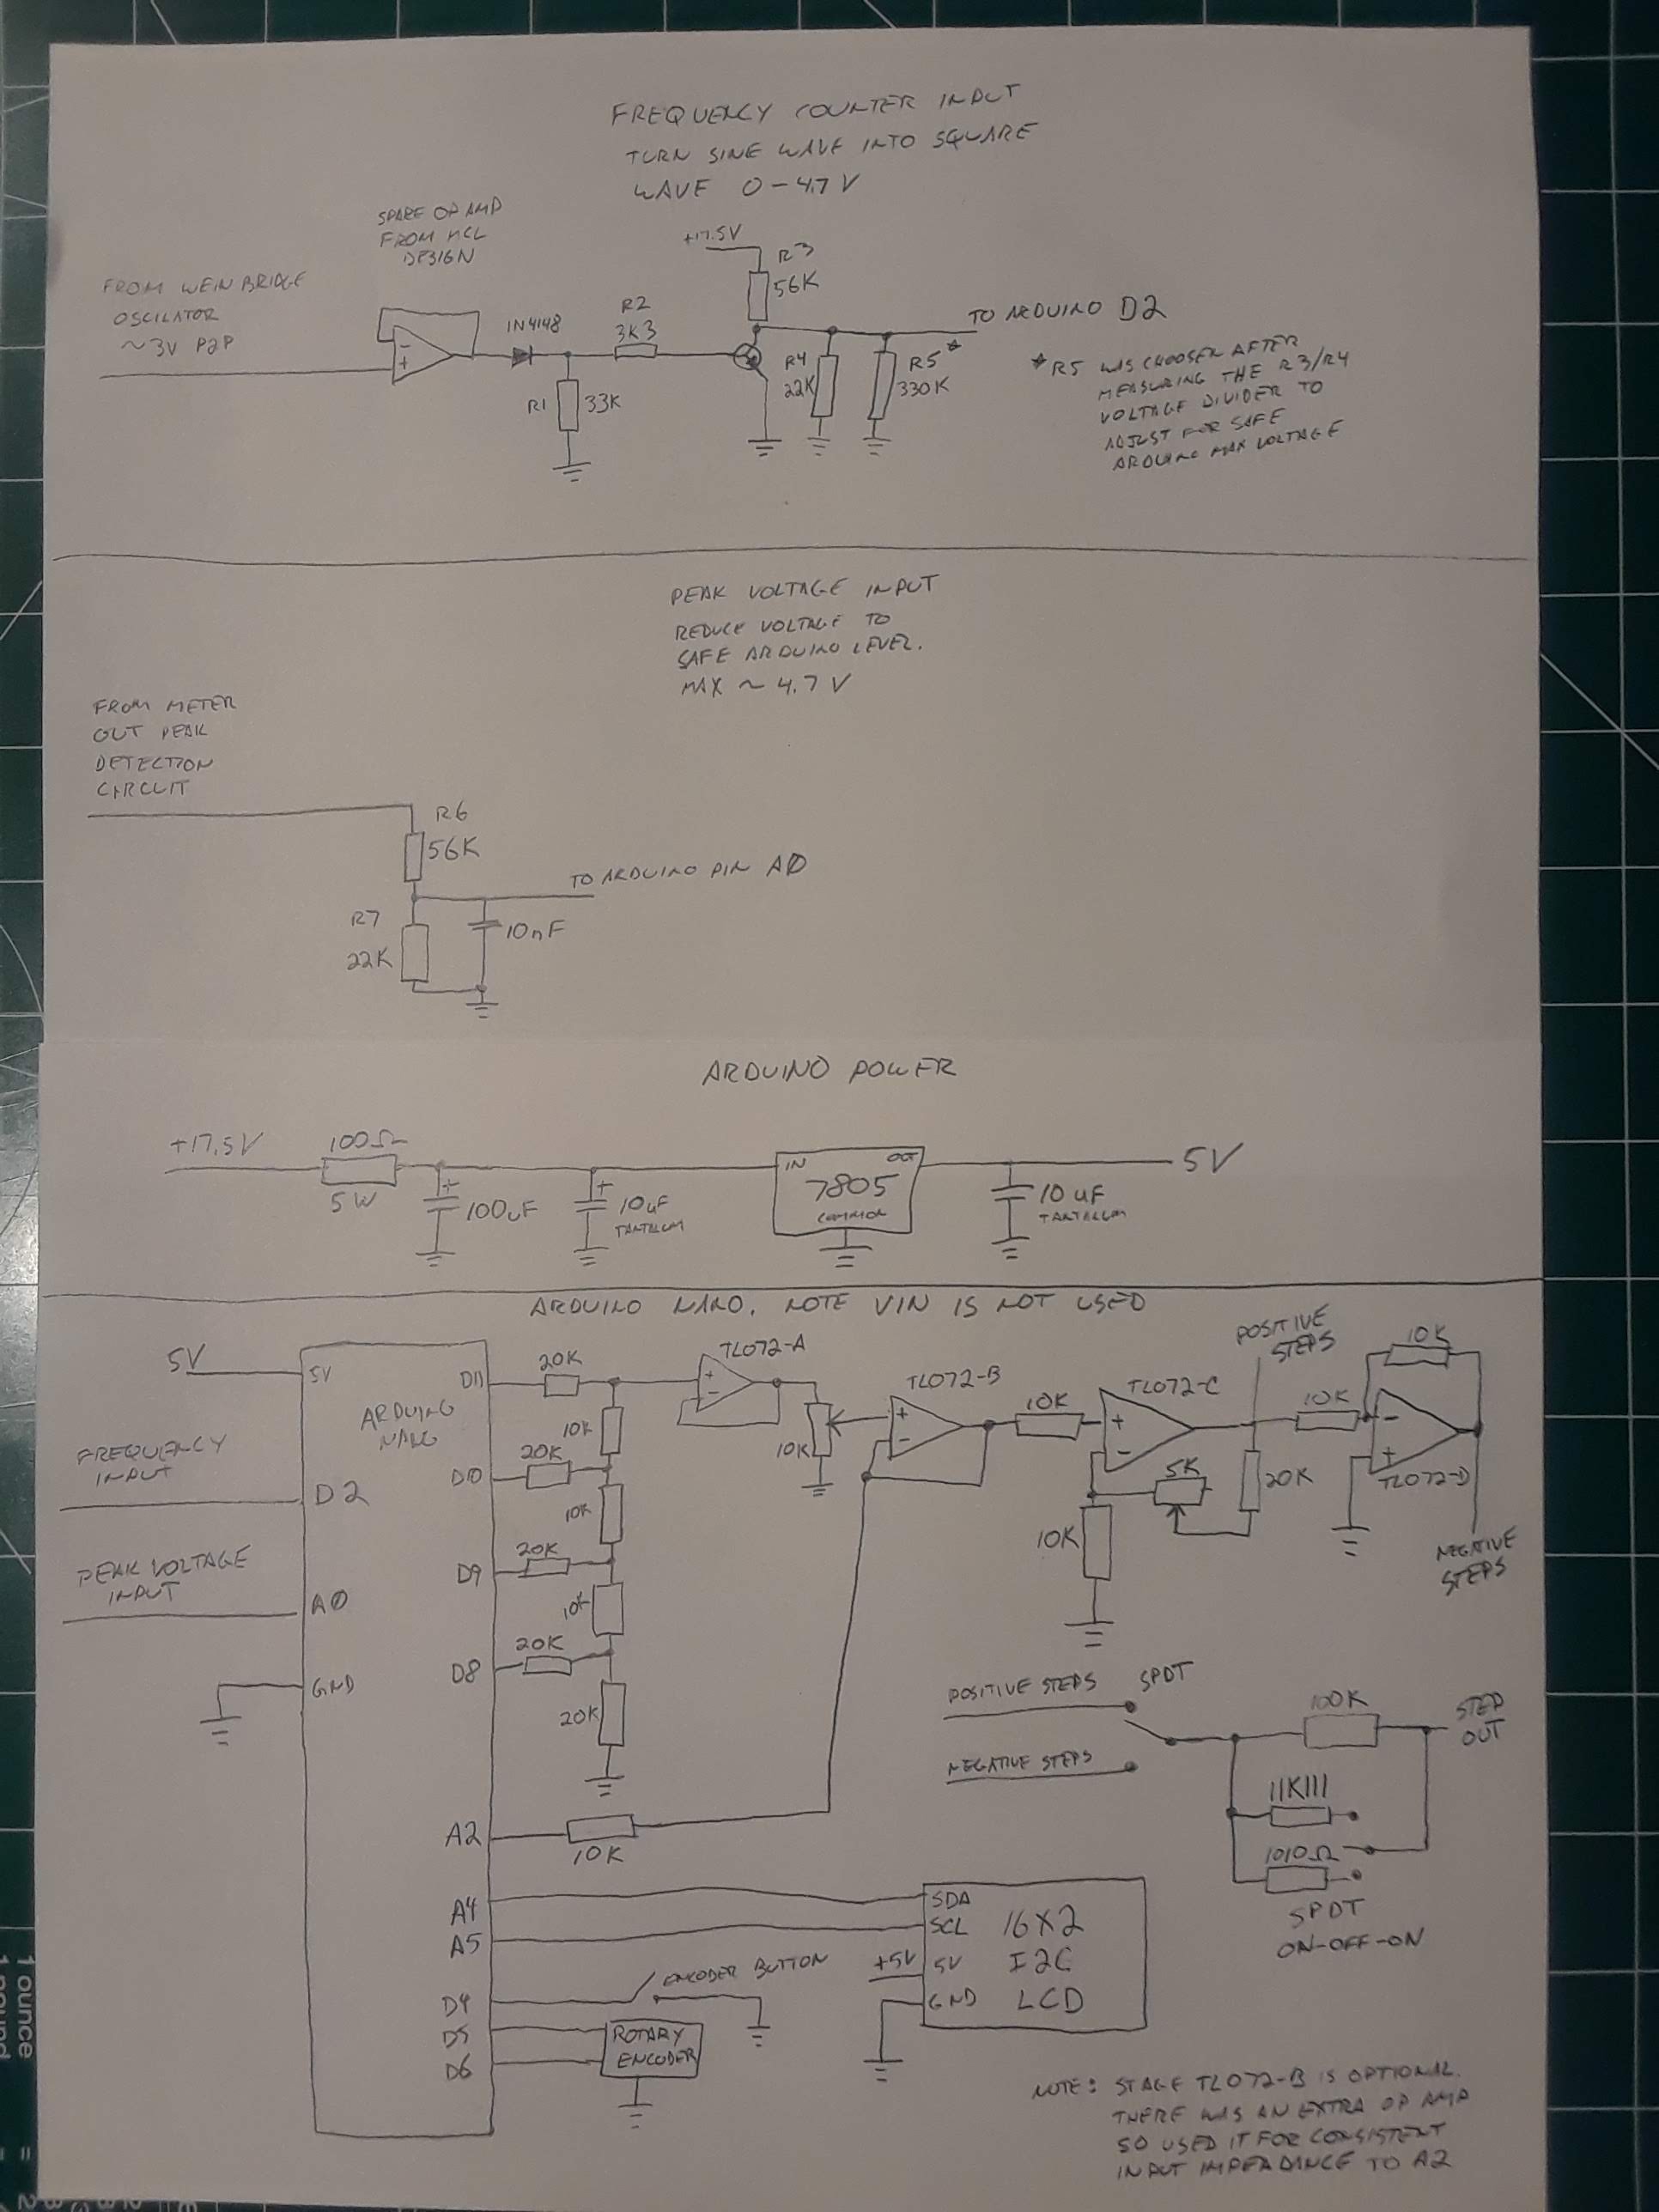 FREQUENCY COUNTER INPUT
TURN SINE WAVE INTO SQUARE
WAVE 0-4.7 V
SPARE OP AMP
FROM MCL
DESIGN
FROM WEIN BRIDGE
OSCILATOR
~3V P2P
+17.5V
R3
56K
1N4148
R2
3K3
R1
33K
R4
22K
R5*
330K
TO ARDUINO D2
* R5 WAS CHOOSEN AFTER
MEASURING THE R3/R4
VOLTAGE DIVIDER TO
ADJUST FOR SAFE
ARDUINO MAX VOLTAGE
PEAK VOLTAGE INPUT
REDUCE VOLTAGE TO
SAFE ARDUINO LEVEL.
MAX ~ 4.7 V
FROM METER
OUT PEAK
DETECTION
CIRCUIT
R6
56K
TO ARDUINO PIN A0
R7
22K
10nF
ARDUINO POWER
+17.5V
100Ω
5W
+
100uF
+
10uF
TANTALUM
IN
OUT
7805
COMMON
5V
10 uF
TANTALUM
ARDUINO NANO. NOTE VIN IS NOT USED
5V
5V
ARDUINO
NANO
FREQUENCY
INPUT
D2
PEAK VOLTAGE
INPUT
A0
GND
D11
20K
10K
D10
20K
10K
D9
20K
10K
D8
20K
20K
TL072-A
+
-
10K
TL072-B
+
-
10K
TL072-C
+
-
POSITIVE
STEPS
5K
20K
10K
10K
10K
-
+
TL072-D
NEGATIVE
STEPS
POSITIVE STEPS
SPDT
NEGATIVE STEPS
100K
STEP
OUT
11K111
1010Ω
SPDT
ON-OFF-ON
A2
10K
A4
A5
SDA
SCL
16X2
+5V
5V
I2C
GND
LCD
D4
ENCODER BUTTON
D5
D6
ROTARY
ENCODER
NOTE: STAGE TL072-B IS OPTIONAL.
THERE WAS AN EXTRA OP AMP
SO USED IT FOR CONSISTENT
INPUT IMPEADANCE TO A2
1 ounce